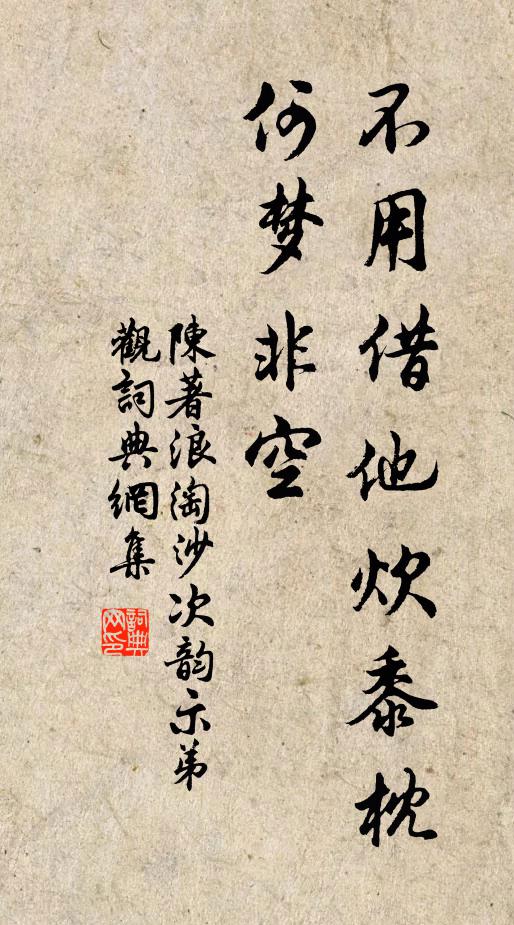 不用借他炊黍枕
何梦非空
陳著浪淘沙次韵示弟
觀詞典網集
詞典网印